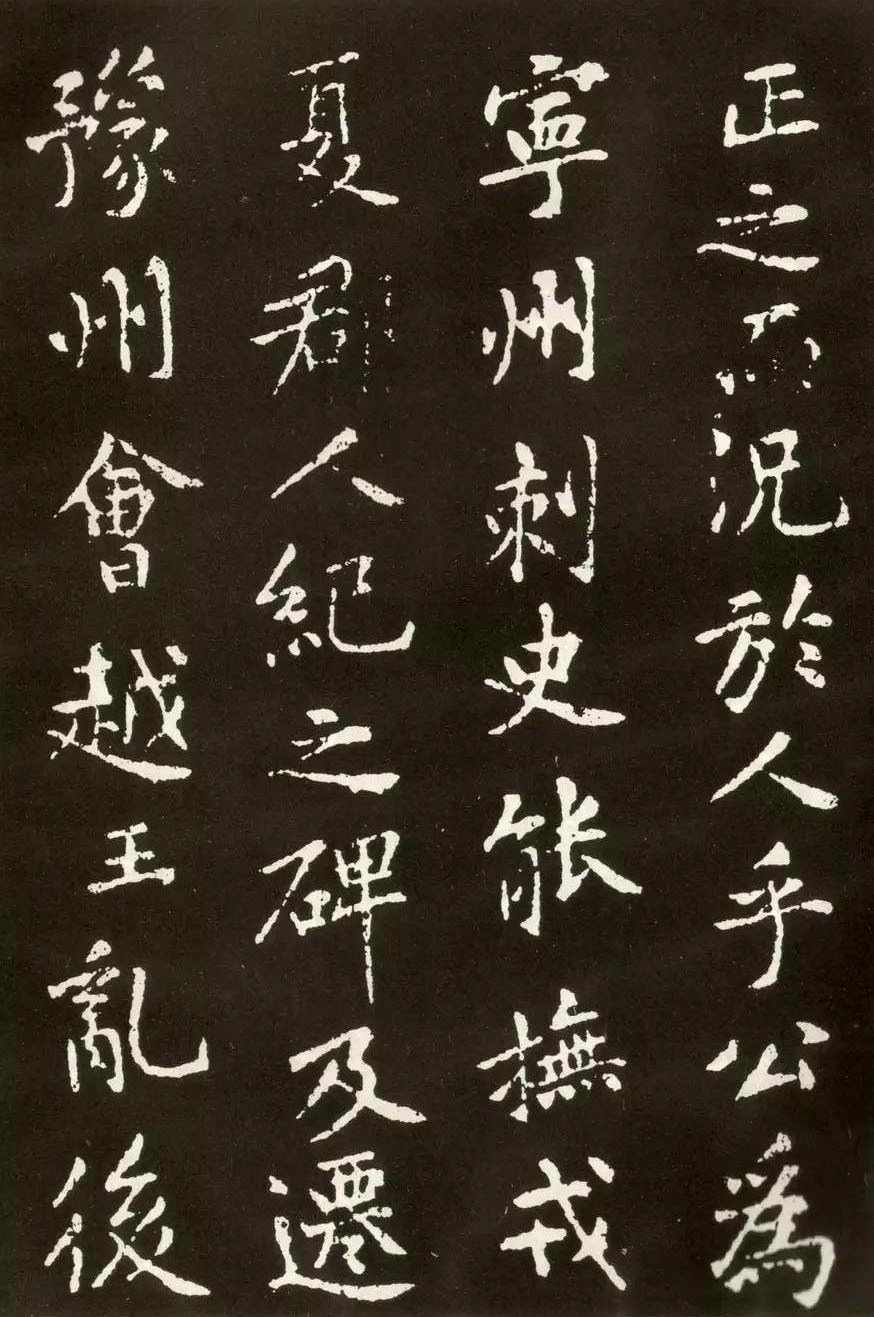 正之而況於人乎公為
寧州刺史能撫戎
夏郡人紀之碑及遷
豫州會越王亂後